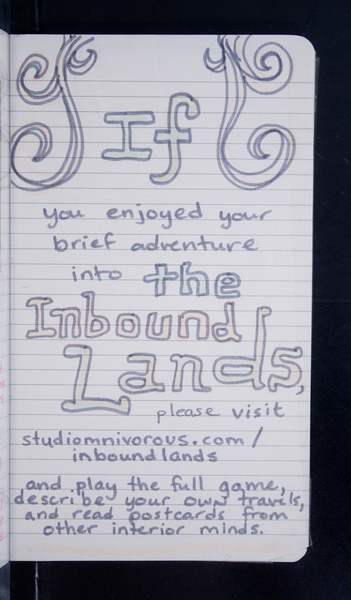 If
you enjoyed your
brief adventure
into the
Inbound
Lands,
please visit
studiomnivorous.com/
inboundlands
and play the full game,
describe your own travels,
and read postcards from
other interior minds.